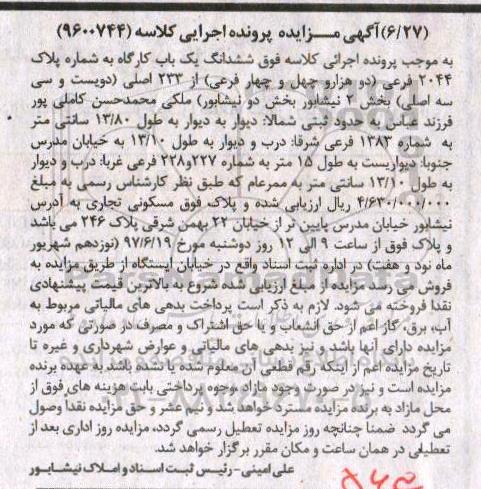 (۶/۲۷) آگهی مــزایده پرونده اجرایی کلاسه (۹۶۰۰۷۴۴)
به موجب پرونده اجرائی کلاسه فوق ششدانگ یک باب کارگاه به شماره پلاک
۲۰۴۴ فرعی (دو هزارو چهل و چهار فرعی) از ۲۳۳ اصلی (دویست و سی
سه اصلی) بخش ۲ نیشابور بخش دو نیشابور) ملکی محمدحسن کاملی پور
فرزند عباس به حدود ثبتی شمالا: دیوار به دیوار به طول ۱۳/۸۰ سانتی متر
به شماره ۱۳۸۳ فرعی شرقا: درب و دیوار به طول ۱۳/۱۰ به خیابان مدرس
جنوبا: دیواریست به طول ۱۵ متر به شماره ۲۲۷و۲۲۸ فرعی غربا: درب و دیوار
به طول ۱۳/۱۰ سانتی متر به ممرعام که طبق نظر کارشناس رسمی به مبلغ
۴/۶۳۰/۰۰۰/۰۰۰ ریال ارزیابی شده و پلاک فوق مسکونی تجاری به آدرس
نیشابور خیابان مدرس پایین تر از خیابان ۲۲ بهمن شرقی پلاک ۲۴۶ می باشد
و پلاک فوق از ساعت ۹ الی ۱۲ روز دوشنبه مورخ ۹۷/۶/۱۹ (نوزدهم شهریور
ماه نود و هفت) در اداره ثبت اسناد واقع در خیابان ایستگاه از طریق مزایده به
فروش می رسد مزایده از مبلغ ارزیابی شده شروع به بالاترین قیمت پیشنهادی
نقدا فروخته می شود. لازم به ذکر است پرداخت بدهی های مالیاتی مربوط به
آب، برق، گاز اعم از حق انشعاب و یا حق اشتراک و مصرف در صورتی که مورد
مزایده دارای آنها باشد و نیز بدهی های مالیاتی و عوارض شهرداری و غیره تا
تاریخ مزایده اعم از اینکه رقم قطعی آن معلوم شده یا نشده باشد به عهده برنده
مزایده است و نیز در صورت وجود مازاد وجوه پرداختی بابت هزینه های فوق از
محل مازاد به برنده مزایده مسترد خواهد شد و نیم عشر و حق مزایده نقداً وصول
می گردد ضمناً چنانچه روز مزایده تعطیل رسمی گردد، مزایده روز اداری بعد از
تعطیلی در همان ساعت و مکان مقرر برگزار خواهد شد.
علی امینی- رئیس ثبت اسناد و املاک نیشابور